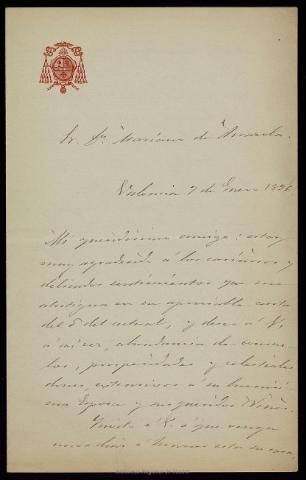 Sr. Dn. Mariano de
Valencia 7 de Enero 189
Mi queridísimo amigo: estoy
muy agradecido á los cariñosos y
delicados sentimientos que me
atestigua en su apreciable carta
del 5 del actual, y deseo á V.
á mi vez, abundancia de consue-
los, prosperidades y celestiales
dones, extensivos á su
Esposa y mi querido
Invito á V. á que venga
á honrar esta su casa